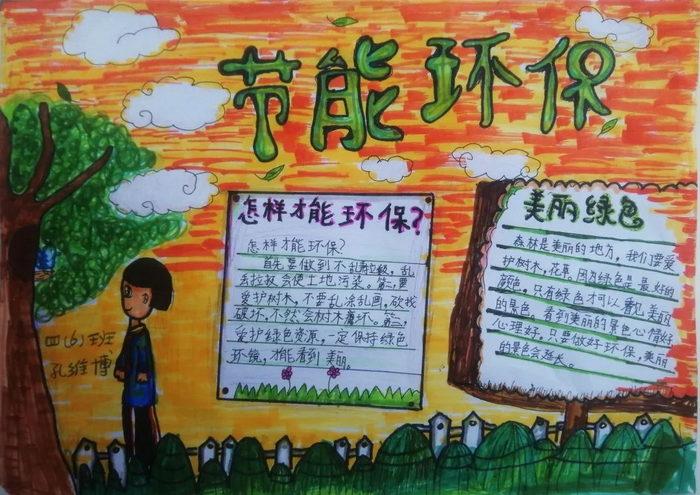 节能环保
怎样才能环保?
怎样才能环保?
首先要做到不乱弃垃圾，乱
丢垃圾会使土地污染。第二，要
爱护树木，不要乱涂乱画，砍找
破坏，不然会树木
爱护绿色资源，一定保持绿色
环镜，才能看到美丽。
美丽绿色
森林是美丽的地方，我们要爱
护树木，花草，因为绿色是最好的
颜色，只有绿色才可以看见美丽
的景色，看到美丽的景色心情好
心理好。只要做好环保，美丽
的景色会延长。
四(6)班
孔维博